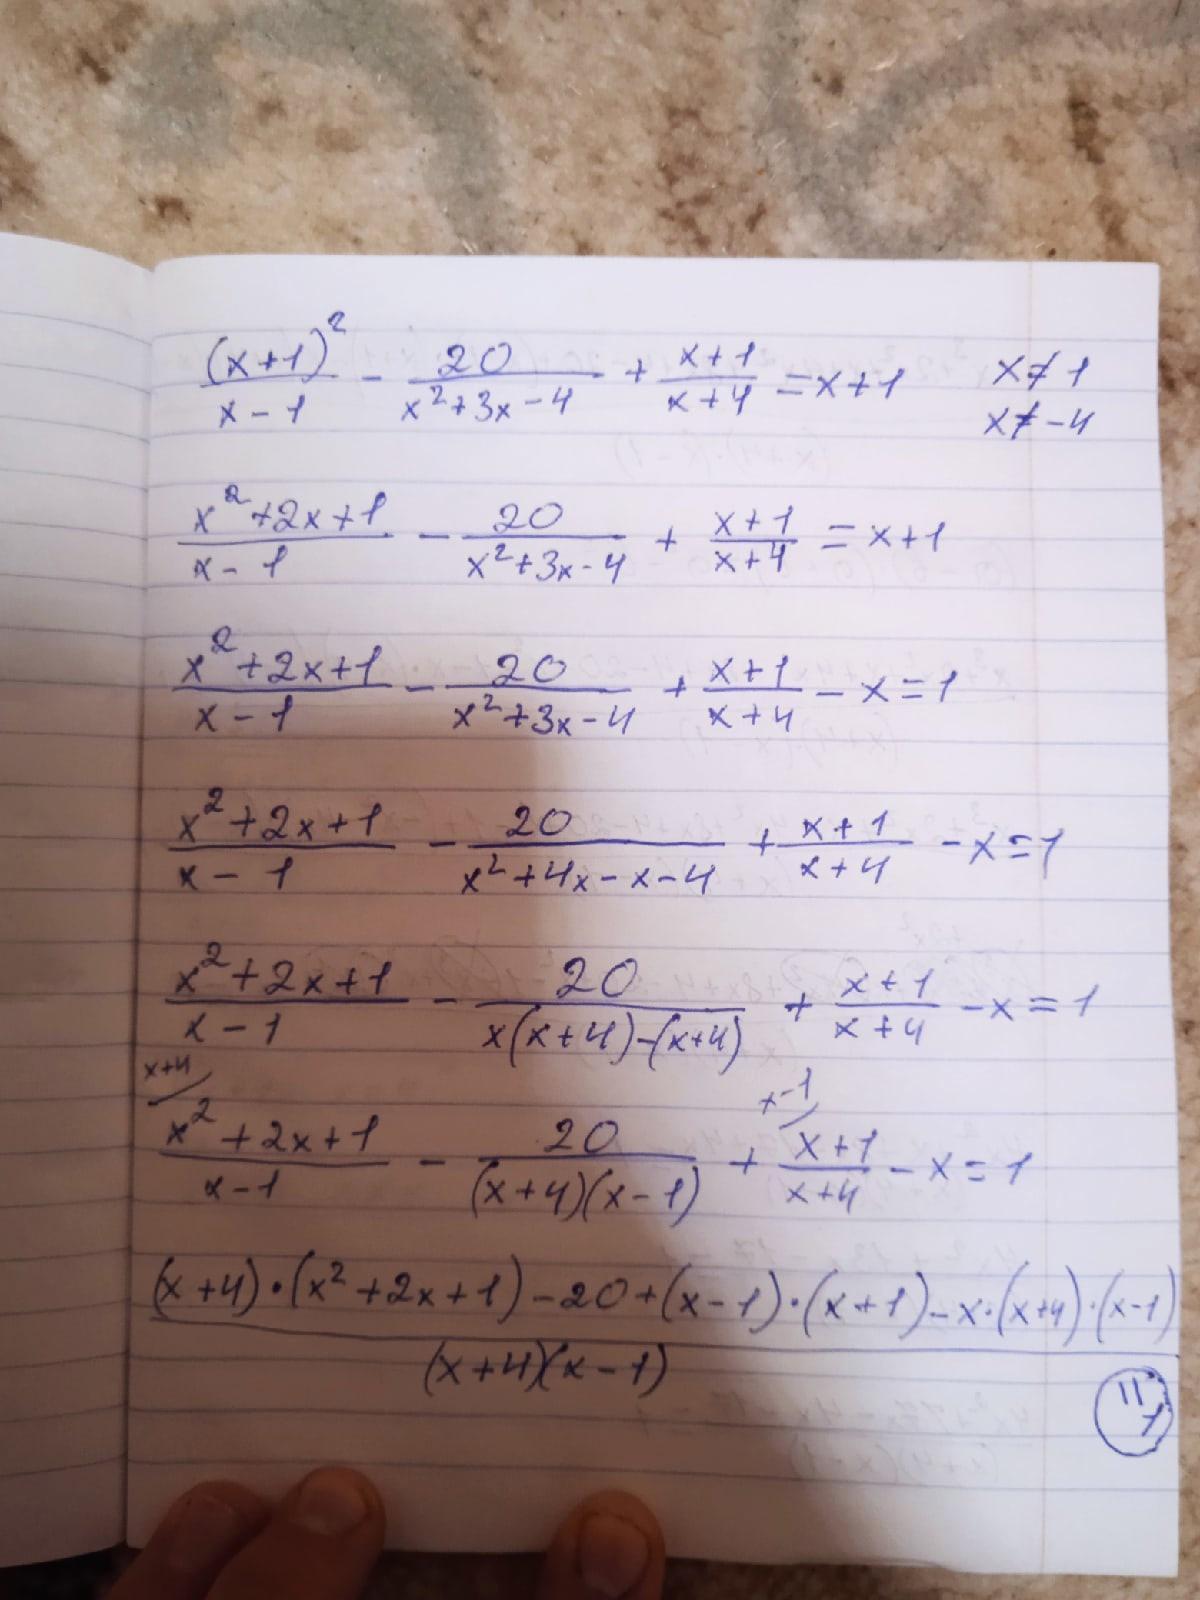 (x+1)²/(x-1) - 20/(x²+3x-4) + (x+1)/(x+4) = x+1    x≠1
x≠-4
(x²+2x+1)/(x-1) - 20/(x²+3x-4) + (x+1)/(x+4) = x+1
(x²+2x+1)/(x-1) - 20/(x²+3x-4) + (x+1)/(x+4) - x = 1
(x²+2x+1)/(x-1) - 20/(x²+4x-x-4) + (x+1)/(x+4) - x = 1
(x²+2x+1)/(x-1) - 20/(x(x+4)-(x+4)) + (x+1)/(x+4) - x = 1
x+4    x-1
(x²+2x+1)/(x-1) - 20/((x+4)(x-1)) + (x+1)/(x+4) - x = 1
((x+4)·(x²+2x+1)-20+(x-1)·(x+1)-x·(x+4)·(x-1))/((x+4)(x-1))
= 1